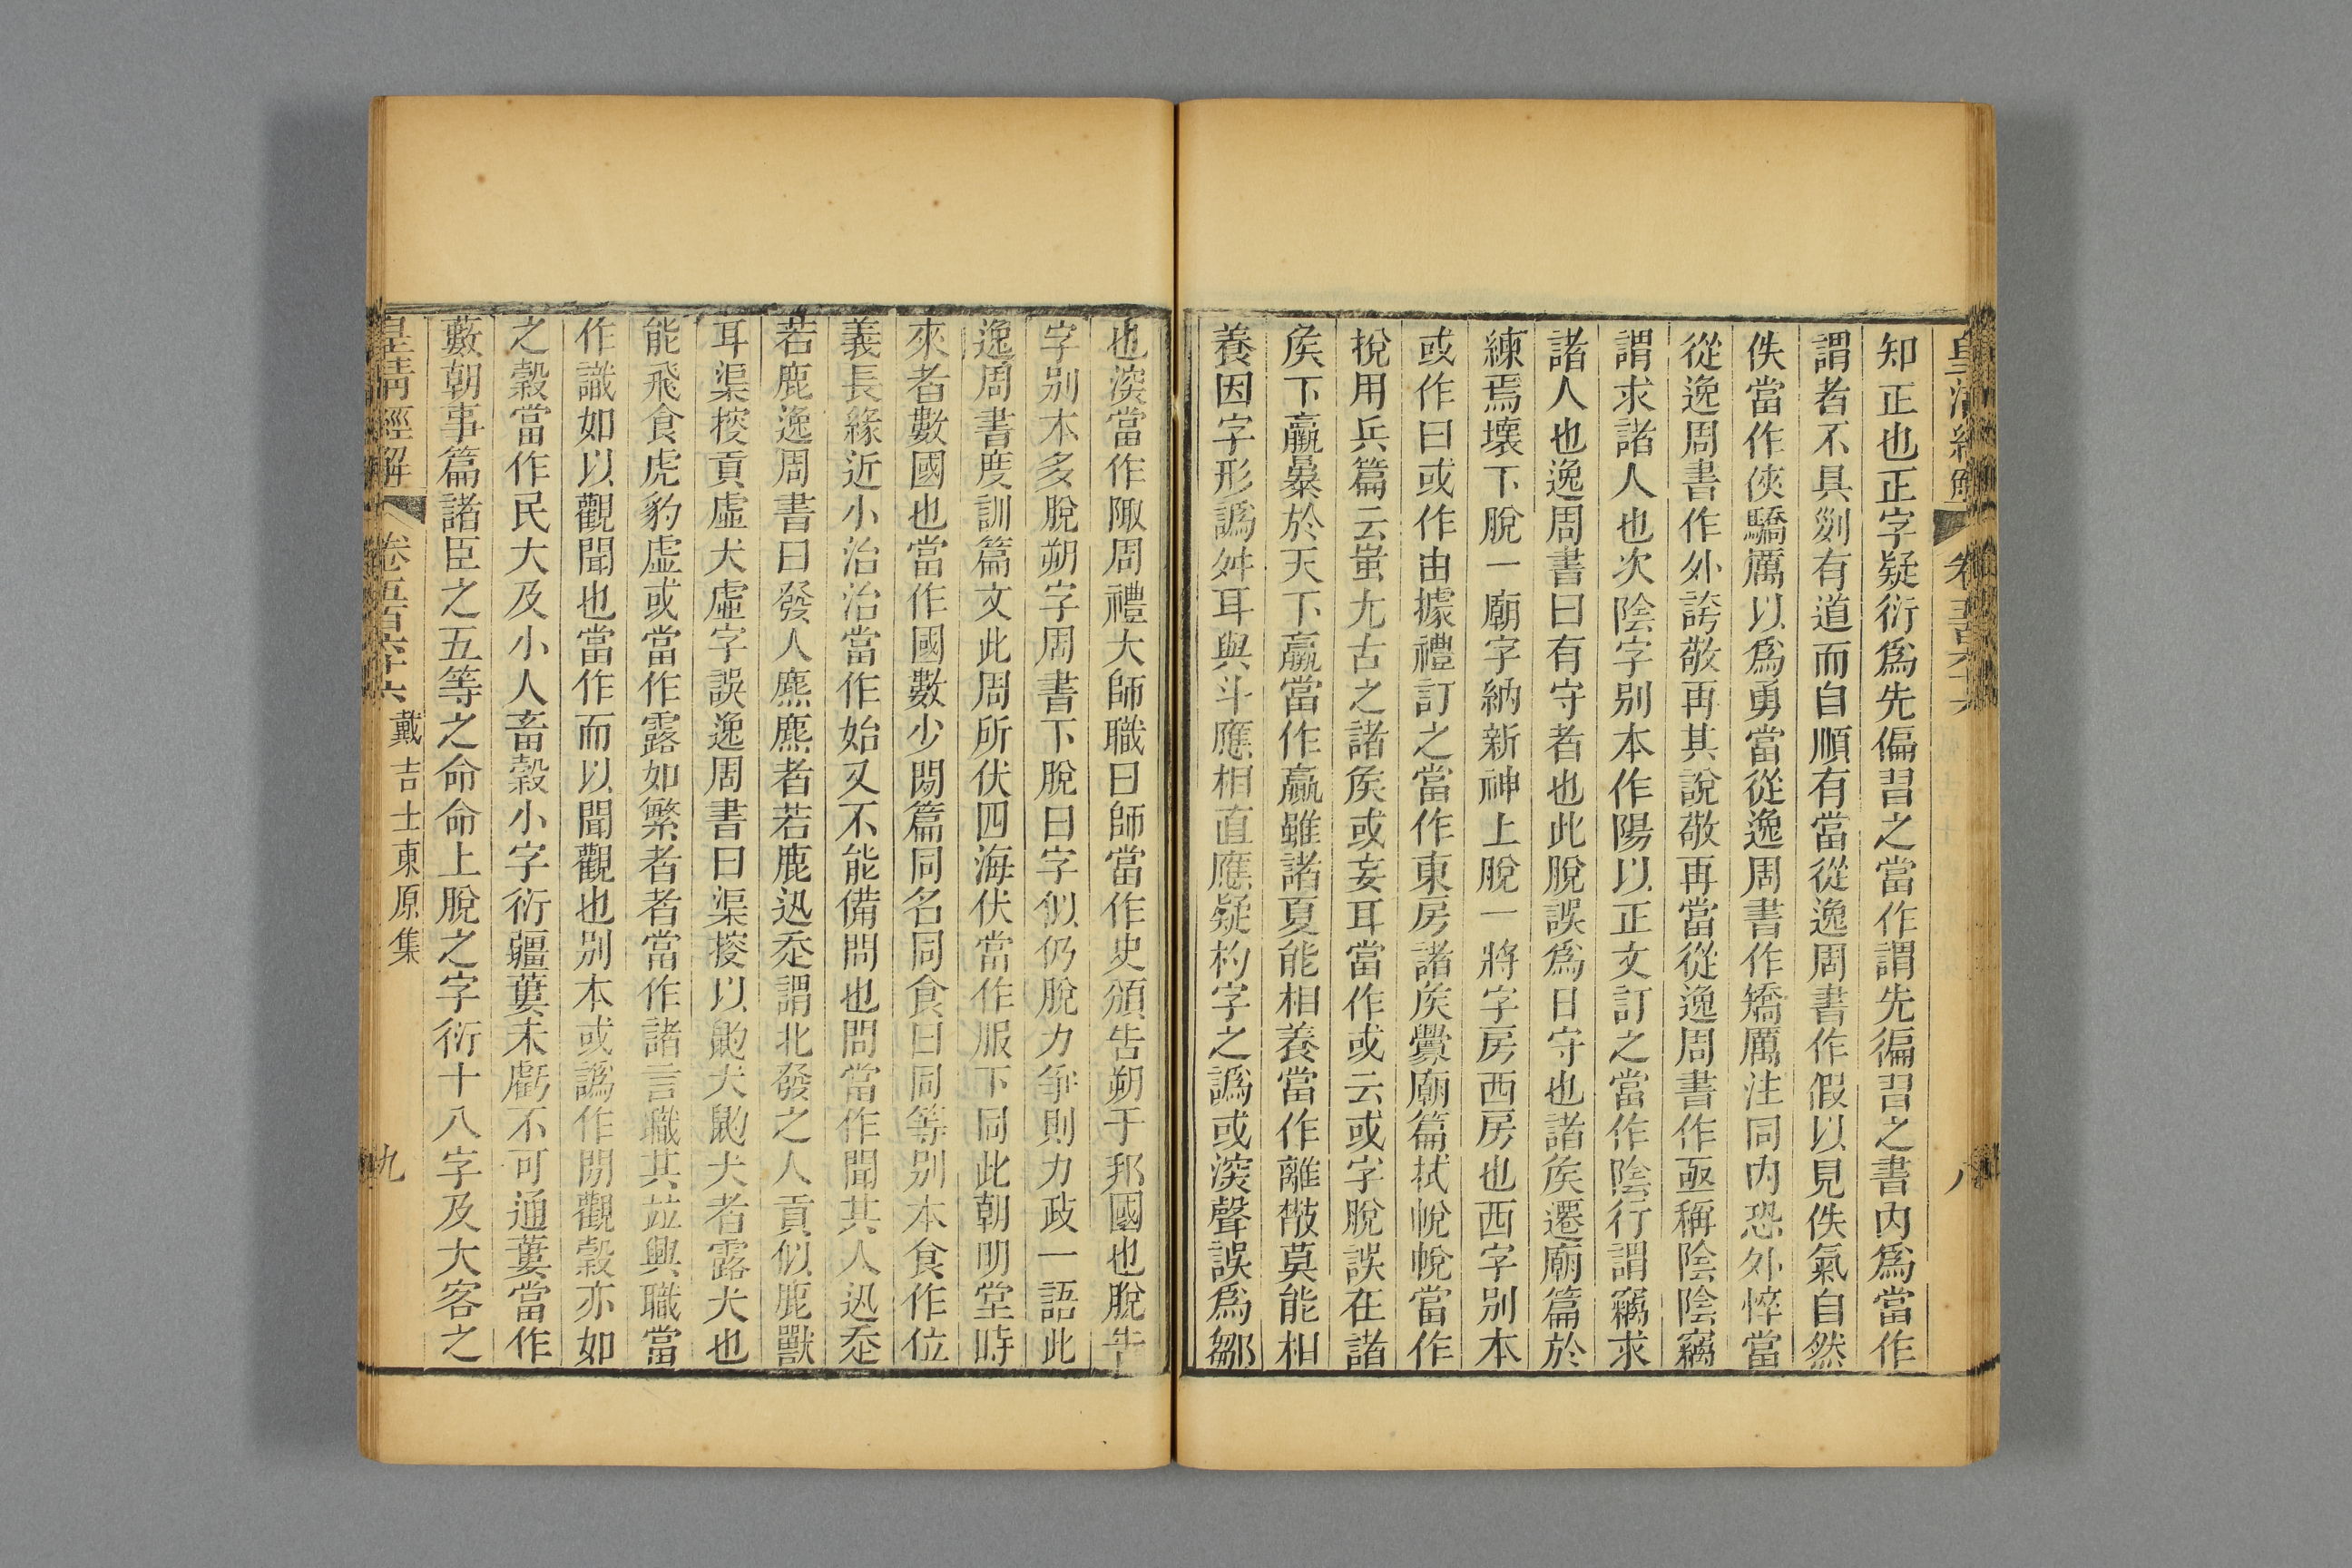 皇清經解 卷五百六十六 八
知正也正字疑衍爲先偏習之當作謂先徧習之書內爲當作
謂者不具剟有道而自順有當從逸周書作假以見佚氣自然
佚當作俠驕厲以爲勇當從逸周書作矯厲注同內恐外悴當
從逸周書作外誇敬再其說敬再當從逸周書作亟稱陰陰竊
謂求諸人也次陰字别本作陽以正文訂之當作陰行謂竊求
諸人也逸周書曰有守者也此脫誤爲日守也諸矦遷廟篇於
練焉壞下脫一廟字納新神上脫一將字房西房也西字别本
或作曰或作由據禮訂之當作東房諸矦釁廟篇拭帨帨當作
挩用兵篇云蚩尤古之諸矦或妄耳當作或云或字脫誤在諸
矦下羸暴於天下羸當作贏雖諸夏能相養當作離散莫能相
養因字形譌舛耳與斗應相直應疑杓字之譌或湥聲誤爲鄒
也湥當作陬周禮大師職曰師當作史頒告朔于邦國也脫告
字别本多脫朔字周書下脫曰字似仍脫力爭則力政一語此
逸周書度訓篇文此周所伏四海伏當作服下同此朝明堂時
來者數國也當作國數少閒篇同名同食曰同等别本食作位
義長緣近小治治當作始又不能備問也問當作聞其人迅走
若鹿逸周書曰發人麃麃者若鹿迅走謂北發之人貢似鹿獸
耳渠搜貢虛犬虛字誤逸周書曰渠搜以䶂犬䶂犬者露犬也
能飛食虎豹虛或當作露如繁者者當作諸言職其竝興職當
作識如以觀聞也當作而以聞觀也别本或譌作閒觀穀亦如
之穀當作民大及小人畜穀小字衍疆蔞未虧不可通蔞當作
藪朝事篇諸臣之五等之命命上脫之字衍十八字及大客之
皇清經解 卷五百六十六 戴吉士東原集 九